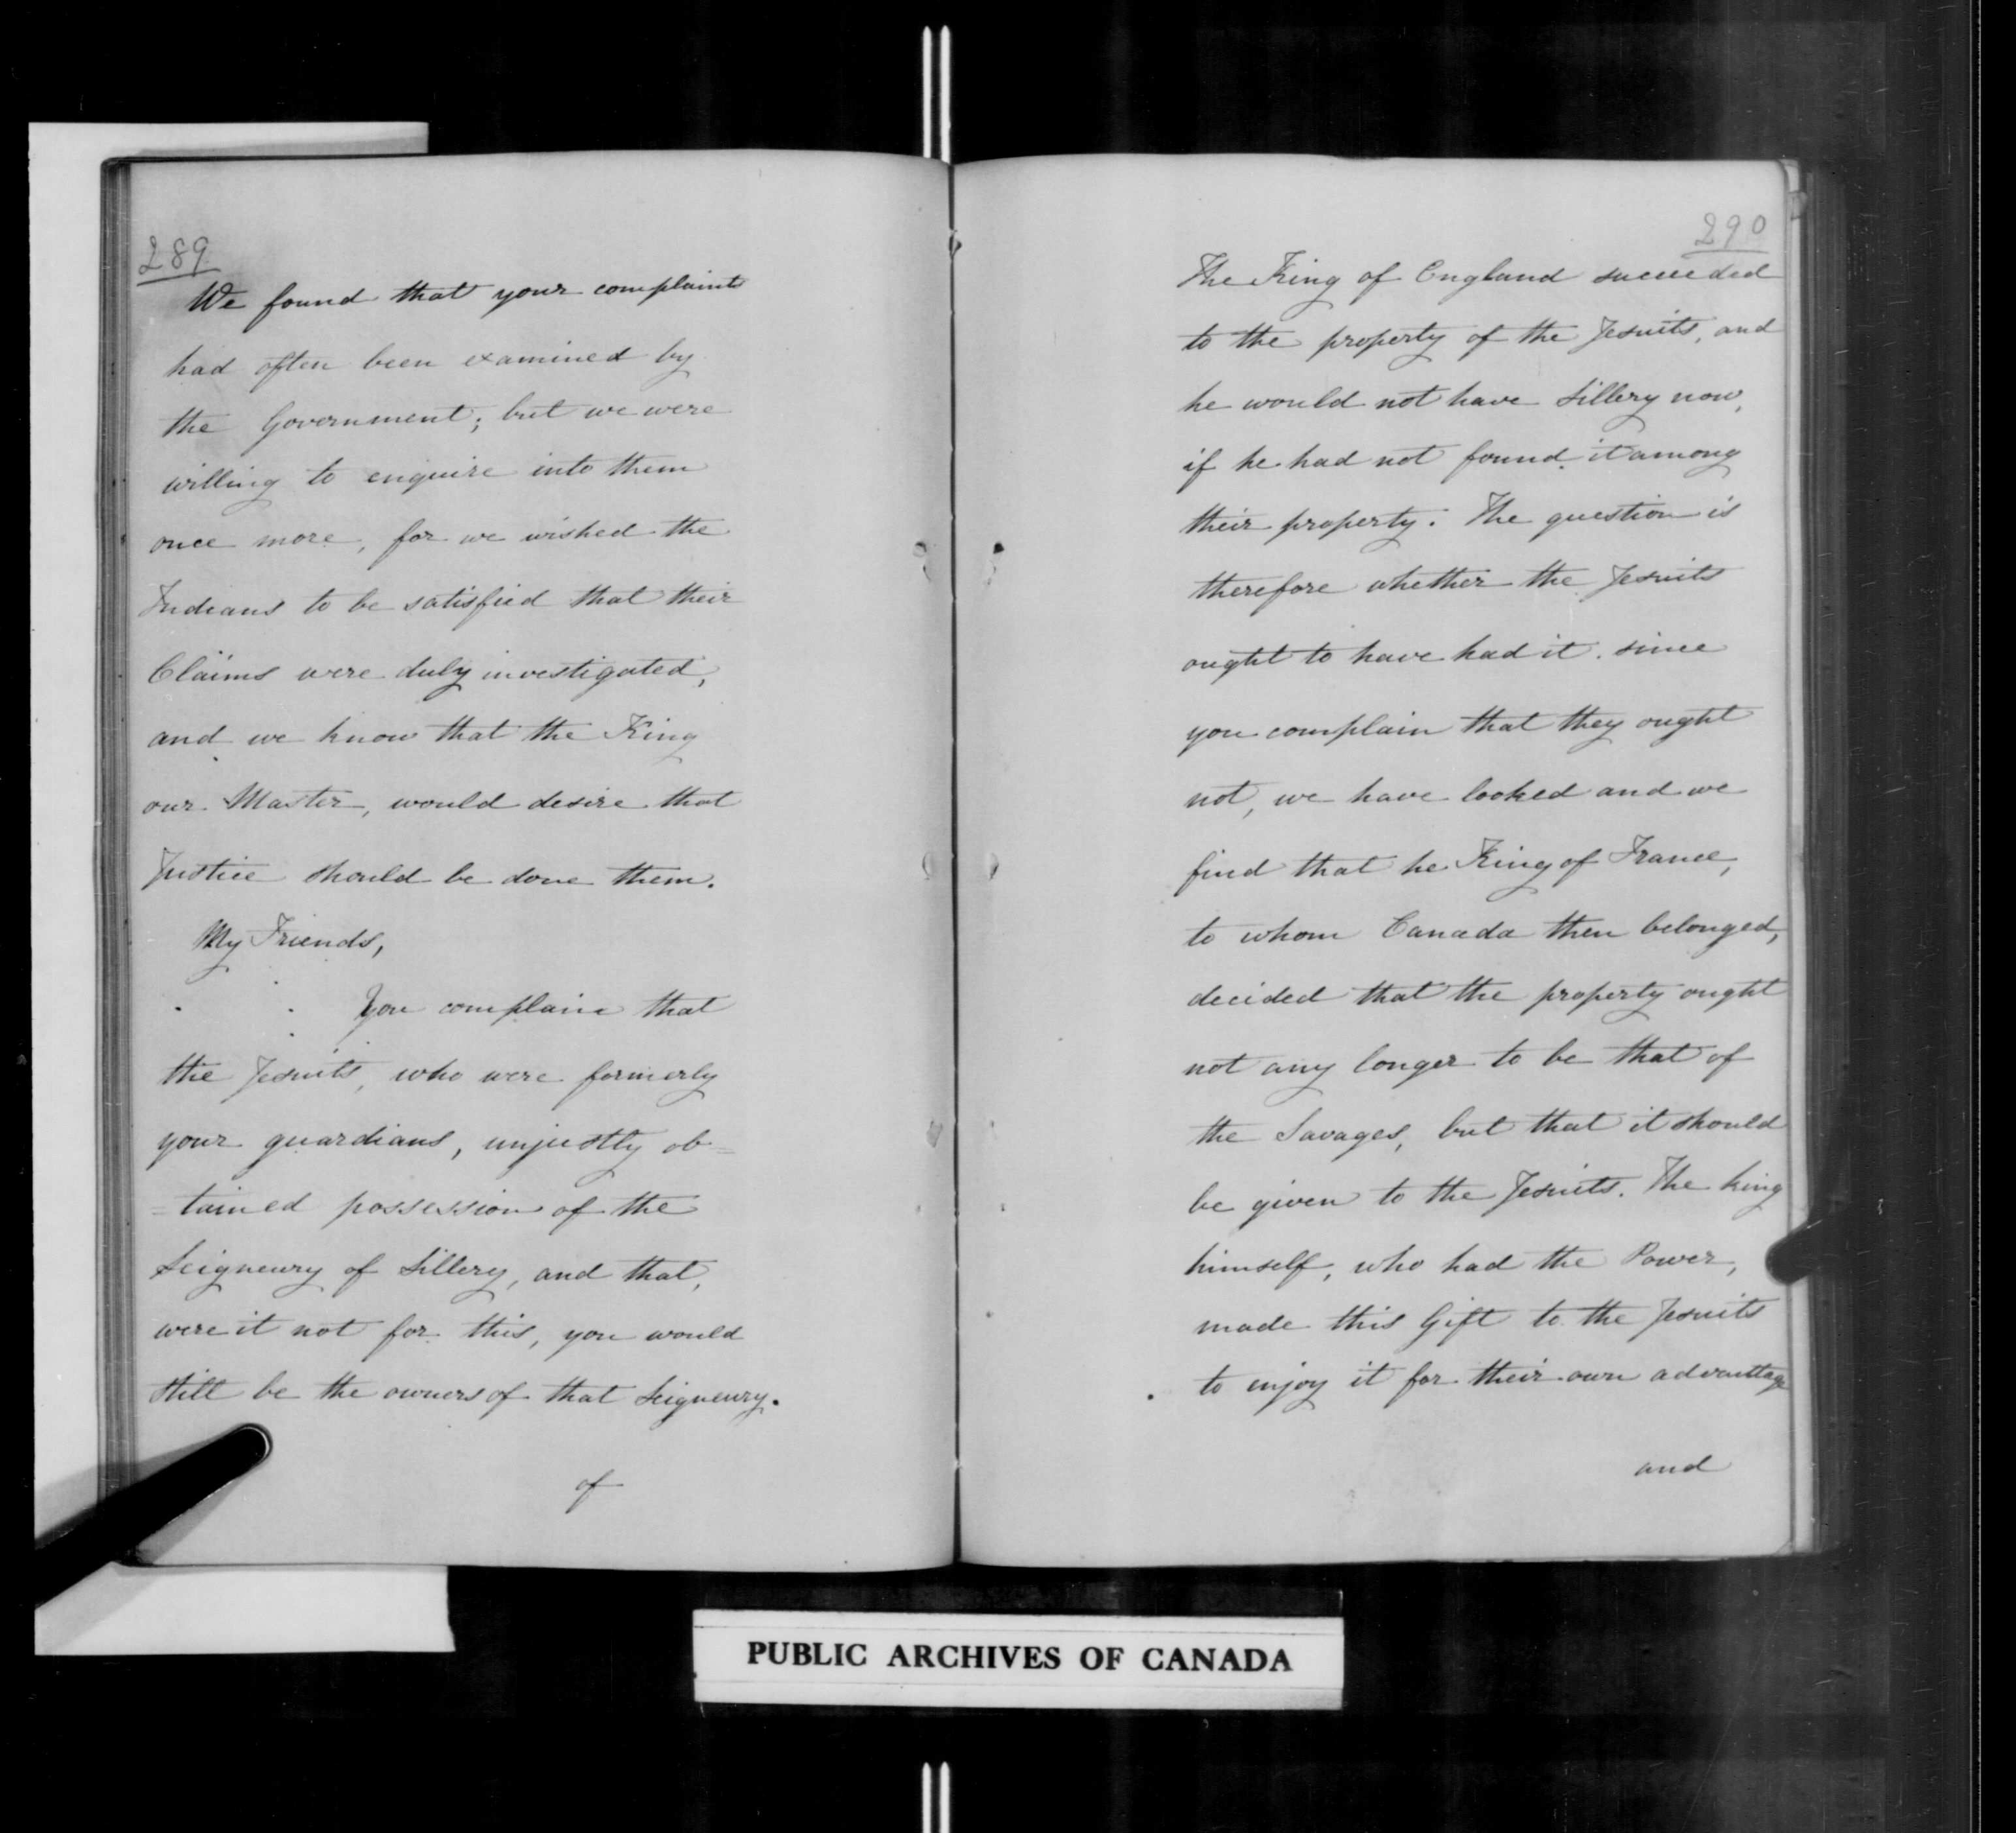 289
We found that your complaints
had often been examined by
the Government; but we were
willing to enquire into them
once more, for we wished the
Indians to be satisfied that their
Claims were duly investigated,
and we know that the King
our Master, would desire that
Justice should be done them.
My Friends,
You complain that
the Jesuits, who were formerly
your guardians, unjustly ob=
=tained possession of the
Seigneury of Sillery, and that,
were it not for this, you would
still be the owners of that Seigneury.
of
290
The King of England succeeded
to the property of the Jesuits, and
he would not have Sillery now,
if he had not found it among
their property. The question is
therefore whether the Jesuits
ought to have had it. since
you complain that they ought
not, we have looked and we
find that he King of France,
to whom Canada then belonged,
decided that the property ought
not any longer to be that of
the Savages, but that it should
be given to the Jesuits. The King
himself, who had the Power,
made this Gift to the Jesuits
to enjoy it for their own advantage
and
PUBLIC ARCHIVES OF CANADA